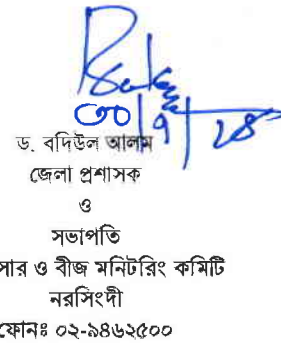 ড. বদিউল আলম
জেলা প্রশাসক
ও
সভাপতি
সার ও বীজ মনিটরিং কমিটি
নরসিংদী
ফোনঃ ০২-৯৪৬২৫০০